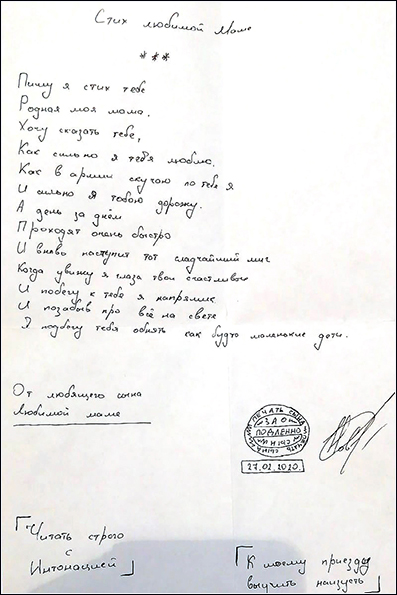 Стих любимой маме
***
Пишу я стих тебе
Родная моя мама.
Хочу сказать тебе,
Как сильно я тебя люблю.
Как в армии скучаю по тебе я
И сильно я тобою дорожу.
А день за днём
Проходят очень быстро
И вновь наступит тот сладчайший миг
Когда увижу я глаза твои счастливые
И побегу к тебе я напрямик
И позабыв про всё на свете
Я подбегу тебя обнять как будто маленькие дети.
От любящего сына
любимой маме
ПЕЧАТЬ СЫНА
ЗАО
ПОДЛЕННО
27.02.2020
Читать строго
с
Интонацией
К моему приезду
выучить наизусть